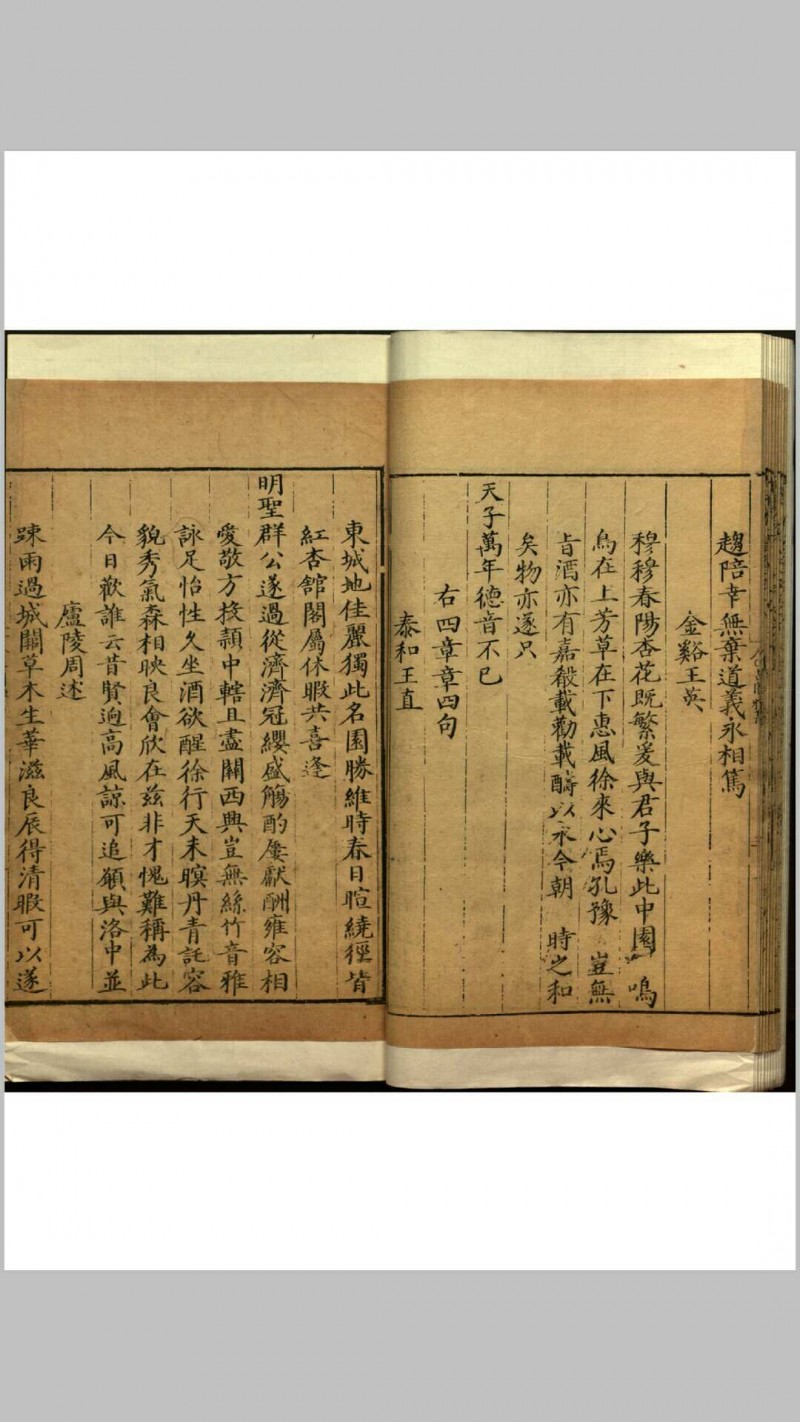 趨陪幸無棄道義永相篤
金谿王英
穆穆春陽杏花既繁爰與君子樂此中園 鳴
鳥在上芳草在下惠風徐來心焉孔豫 豈無
旨酒亦有嘉殽載勸載酬以永今朝 時之和
矣物亦遂只
天子萬年德音不已
右四章章四句
泰和王直
東城地佳麗獨此名園勝維時春日暄繞徑皆
紅杏館閣屬休暇共喜逢
明聖群公遂過從濟濟冠纓盛觴酌屢獻酬雍容相
愛敬方投轄且盡關西興豈無絲竹音雅
詠足怡性久坐酒欲醒徐行天未暝丹青託容
貌秀氣森相映良會欣在茲非才愧難稱為此
今日歡誰云昔賢逈高風諒可追願與洛中並
廬陵周述
踈雨過城闕草木生華滋良辰得清暇可以遂